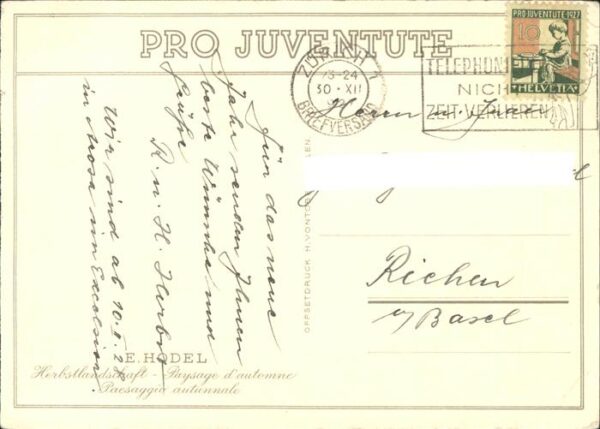 PRO JUVENTUTE
PRO JUVENTUTE 1927
10
5
HELVETIA
ZÜRICH
7
23-24
30·XII
BRIEFVERSAND
TELEPHON
NICH
ZEIT VERLIEREN
Herrn u. Frau
Riehen
b/Basel
Für das neue
Jahr senden Ihnen
beste Wünsche und
Grüße
R. u. H.
Wir sind ab 10.I.28
in Arosa in Excelsior
OFFSETDRUCK H. VONTO
E. HODEL
Herbstlandschaft - Paysage d'automne
Paesaggio autunnale